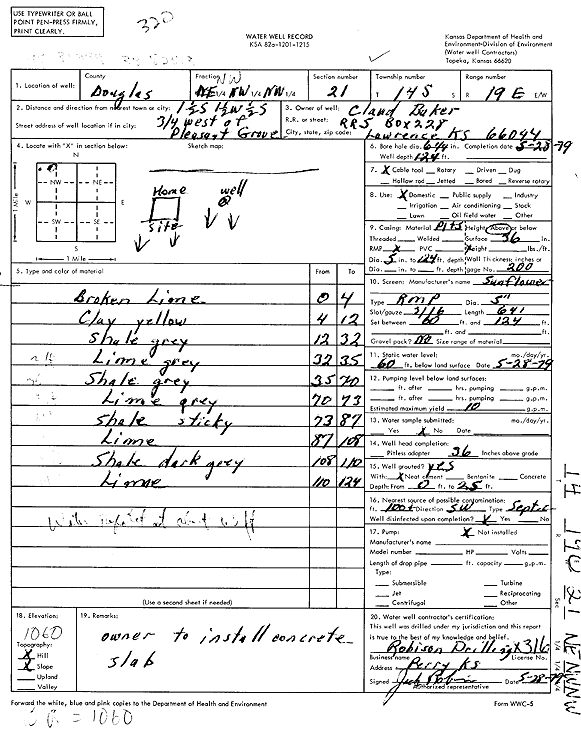 USE TYPEWRITER OR BALL
POINT PEN-PRESS FIRMLY,
PRINT CLEARLY.
320
WATER WELL RECORD
KSA 82a-1201-1215
Kansas Department of Health and
Environment-Division of Environment
(Water well Contractors)
Topeka, Kansas 66620
1. Location of well: County Douglas Fraction NW NE 1/4 NW 1/4 NW 1/4 Section number 21 Township number T 14 S S Range number R 19 E E/W
2. Distance and direction from nearest town or city: 1 1/2 S 1 1/2 W 1/2 S
Street address of well location if in city: 3/4 west of Pleasant Grove
3. Owner of well: Cland Baker
R.R. or street: RR5 Box 228
City, state, zip code: Lawrence KS 66044
4. Locate with "X" in section below: Sketch map:
N
NW NE
W E
SW SE
S
1 Mile
1 Mile
Home well
Site
6. Bore hole dia. 6 1/4 in. Completion date 5-28-79
Well depth 124 ft.
7. X Cable tool Rotary Driven Dug
Hollow rod Jetted Bored Reverse rotary
8. Use: X Domestic Public supply Industry
Irrigation Air conditioning Stock
Lawn Oil field water Other
9. Casing: Material Height: Above or below
Threaded Welded Surface 36 in.
RMP X PVC Weight lbs./ft.
Dia. 5 in. to 124 ft. depth Wall Thickness: inches or
Dia. in. to ft. depth gage No. 200
10. Screen: Manufacturer's name Sunflower
Type RMP Dia. 5"
Slot/gauze 3/16 Length 64'
Set between 60 ft. and 124 ft.
ft. and ft.
Gravel pack? No Size range of material
11. Static water level: mo./day/yr.
60 ft. below land surface Date 5-28-79
12. Pumping level below land surfaces:
ft. after hrs. pumping g.p.m.
ft. after hrs. pumping g.p.m.
Estimated maximum yield 10 g.p.m.
13. Water sample submitted: mo./day/yr.
Yes X No Date
14. Well head completion:
Pitless adapter 36 Inches above grade
15. Well grouted? yes
With: X Neat cement Bentonite Concrete
Depth: From 0 ft. to 25 ft.
16. Nearest source of possible contamination:
ft. 100+ Direction SW Type Septic
Well disinfected upon completion? X Yes No
17. Pump: X Not installed
Manufacturer's name
Model number HP Volts
Length of drop pipe ft. capacity g.p.m.
Type:
Submersible Turbine
Jet Reciprocating
Centrifugal Other
5. Type and color of material From To
Broken Lime 0 4
Clay yellow 4 12
Shale grey 12 32
Lime grey 32 35
Shale grey 35 70
Lime grey 70 73
Shale sticky 73 87
Lime 87 108
Shale dark grey 108 110
Lime 110 124
(Use a second sheet if needed)
18. Elevation: 1060
Topography:
X Hill
X Slope
Upland
Valley
19. Remarks: owner to install concrete
slab
20. Water well contractor's certification:
This well was drilled under my jurisdiction and this report
is true to the best of my knowledge and belief.
Robison Drilling 316
Business name License No.
Address Perry KS
Signed Date 5-28-79
Authorized representative
Forward the white, blue and pink copies to the Department of Health and Environment
Form WWC-5
= 1060
T R Sec 1/4 1/4 1/4
14 19E 21 NENWNW